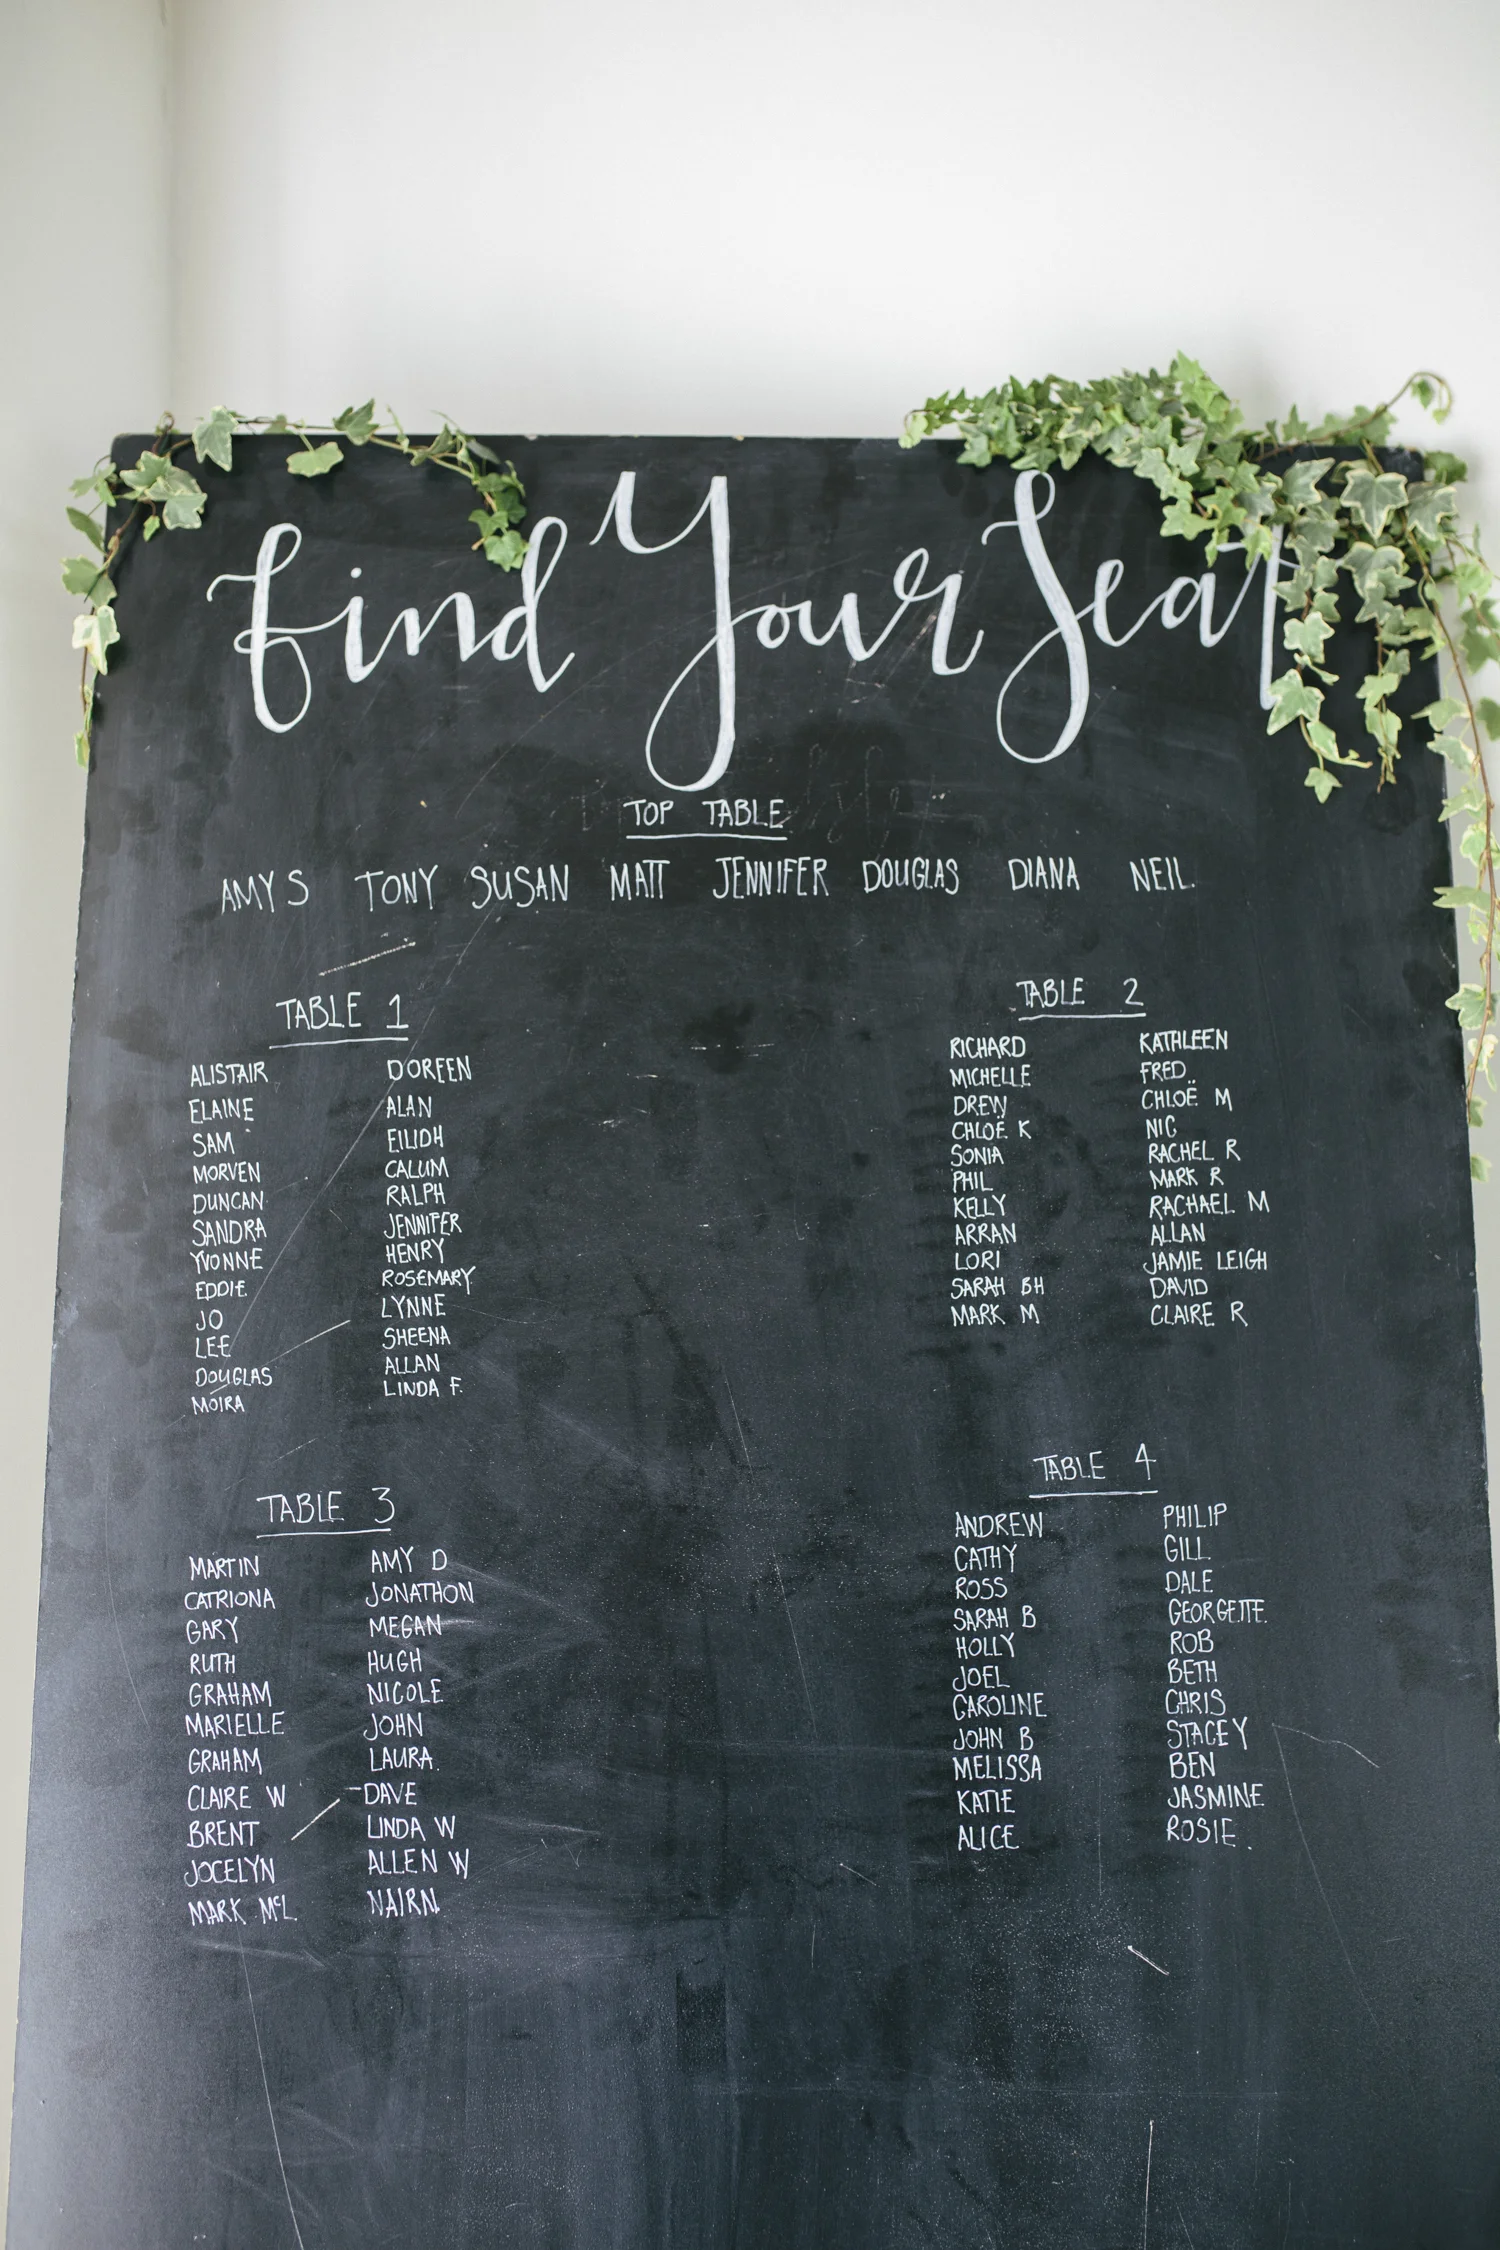 Find Your Seat
TOP TABLE
AMY S TONY SUSAN MATT JENNIFER DOUGLAS DIANA NEIL.
TABLE 1
ALISTAIR DOREEN
ELAINE ALAN
SAM EILIDH
MORVEN CALUM
DUNCAN RALPH
SANDRA JENNIFER
YVONNE HENRY
EDDIE ROSEMARY
JO LYNNE
LEE SHEENA
DOUGLAS ALLAN
MOIRA LINDA F.
TABLE 2
RICHARD KATHLEEN
MICHELLE FRED
DREW CHLOË M
CHLOË K NIC
SONIA RACHEL R
PHIL MARK R
KELLY RACHAEL M
ARRAN ALLAN
LORI JAMIE LEIGH
SARAH BH DAVID
MARK M CLAIRE R
TABLE 3
MARTIN AMY D
CATRIONA JONATHON
GARY MEGAN
RUTH HUGH
GRAHAM NICOLE
MARIELLE JOHN
GRAHAM LAURA.
CLAIRE W DAVE
BRENT LINDA W
JOCELYN ALLEN W
MARK McL NAIRN
TABLE 4
ANDREW PHILIP
CATHY GILL
ROSS DALE
SARAH B GEORGETTE.
HOLLY ROB
JOEL BETH
CAROLINE CHRIS
JOHN B STACEY
MELISSA BEN
KATIE JASMINE
ALICE ROSIE.